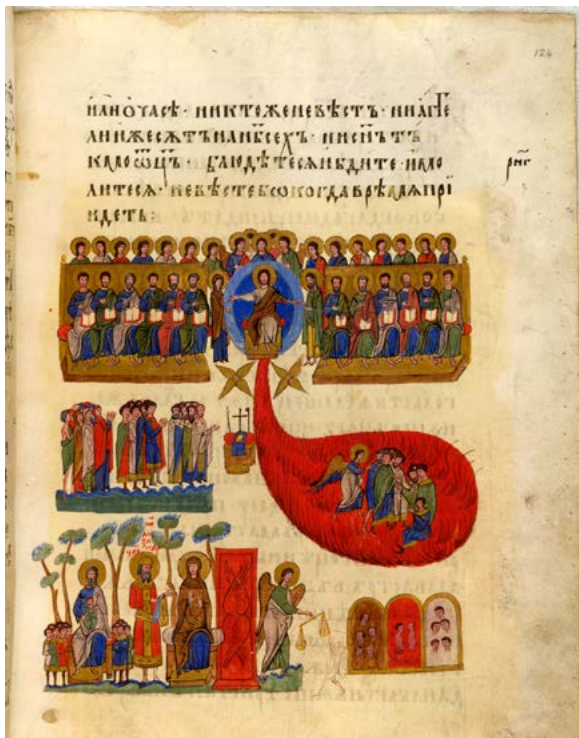 124
или о часѣ· никтоже не вѣстъ· ни агг҃е
ли иже сѫтъ на нб҃сехъ· ни сн҃ъ тъ
кмо ѡц҃ъ· блюдѣтесѧ и бдите· и мо
литесѧ· не вѣсте бѡ когда врѣмѧ прі
идетъ: